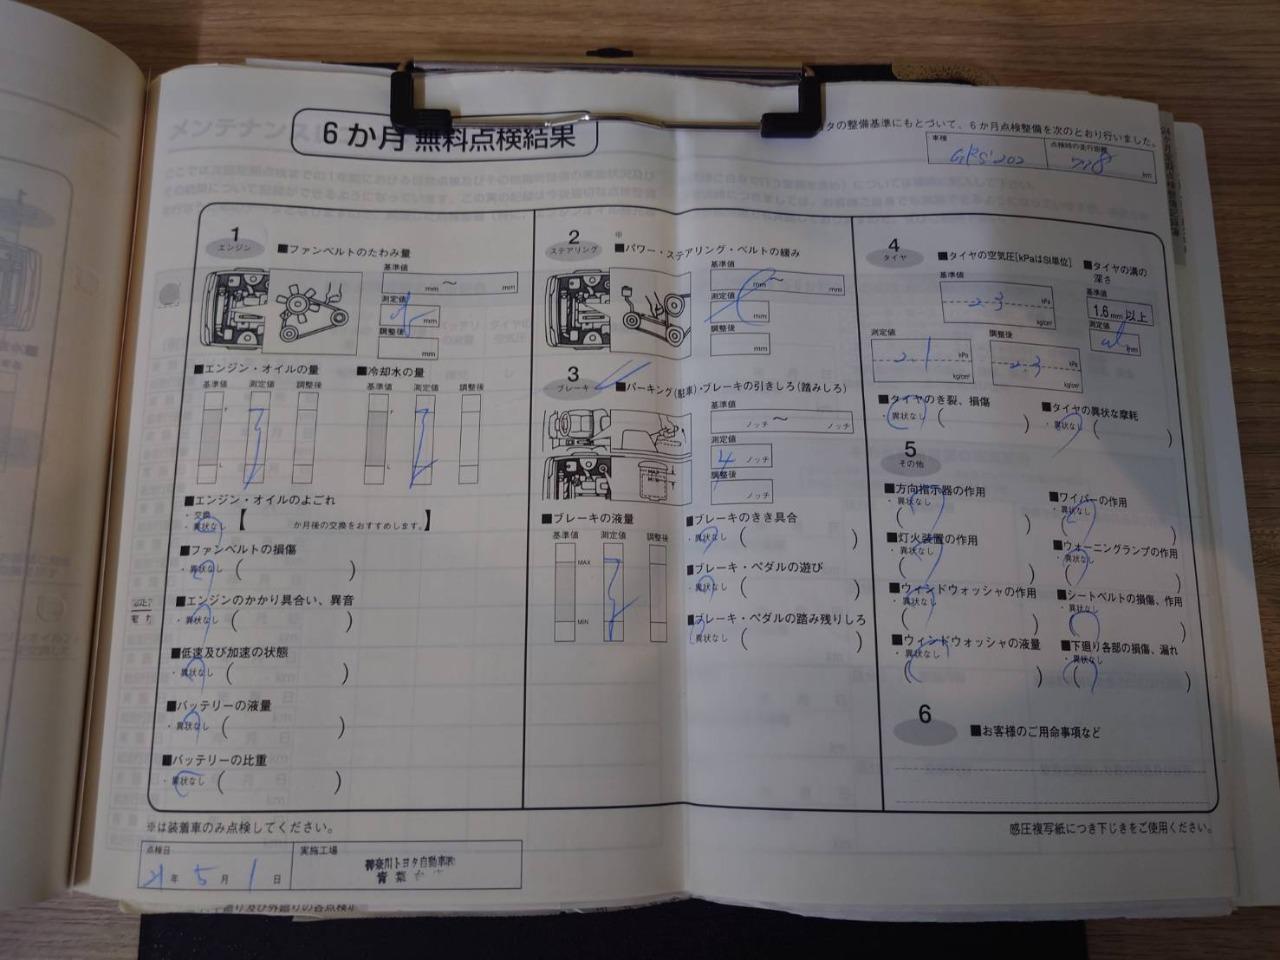 6か月 無料点検結果
タの整備基準にもとづいて、6か月点検整備を次のとおり行いました。
車種
点検時の走行距離
GRS202
778
km
1
エンジン
■ファンベルトのたわみ量
基準値
mm 〜 mm
測定値
mm
調整後
mm
■エンジン・オイルの量
基準値 測定値 調整後
F
L
■冷却水の量
基準値 測定値 調整後
F
L
■エンジン・オイルのよごれ
・交換
・異状なし 【 か月後の交換をおすすめします。】
■ファンベルトの損傷
・異状なし ( )
■エンジンのかかり具合い、異音
・異状なし ( )
■低速及び加速の状態
・異状なし ( )
■バッテリーの液量
・異状なし ( )
■バッテリーの比重
・異状なし ( )
2
ステアリング
※
■パワー・ステアリング・ベルトの緩み
基準値
mm 〜 mm
測定値
mm
調整後
mm
3
ブレーキ
■パーキング(駐車)・ブレーキの引きしろ(踏みしろ)
基準値
ノッチ 〜 ノッチ
測定値
4 ノッチ
調整後
ノッチ
■ブレーキの液量
基準値 測定値 調整後
MAX
MIN
■ブレーキのきき具合
・異状なし ( )
■ブレーキ・ペダルの遊び
・異状なし ( )
■ブレーキ・ペダルの踏み残りしろ
・異状なし ( )
4
タイヤ
■タイヤの空気圧[kPaはSI単位]
基準値
2.3 kPa
kg/cm²
測定値
2.1 kPa
kg/cm²
調整後
2.3 kPa
kg/cm²
■タイヤの溝の深さ
基準値
1.6mm以上
測定値
mm
■タイヤのき裂、損傷
・異状なし ( )
■タイヤの異状な摩耗
・異状なし ( )
5
その他
■方向指示器の作用
・異状なし
( )
■ワイパーの作用
・異状なし
( )
■灯火装置の作用
・異状なし
( )
■ウォーニングランプの作用
・異状なし
( )
■ウィンドウォッシャの作用
・異状なし
( )
■シートベルトの損傷、作用
・異状なし
( )
■ウィンドウォッシャの液量
・異状なし
( )
■下廻り各部の損傷、漏れ
・異状なし
( )
6
■お客様のご用命事項など
※は装着車のみ点検してください。
感圧複写紙につき下じきをご使用ください。
点検日
21年 5月 1日
実施工場
神奈川トヨタ自動車㈱